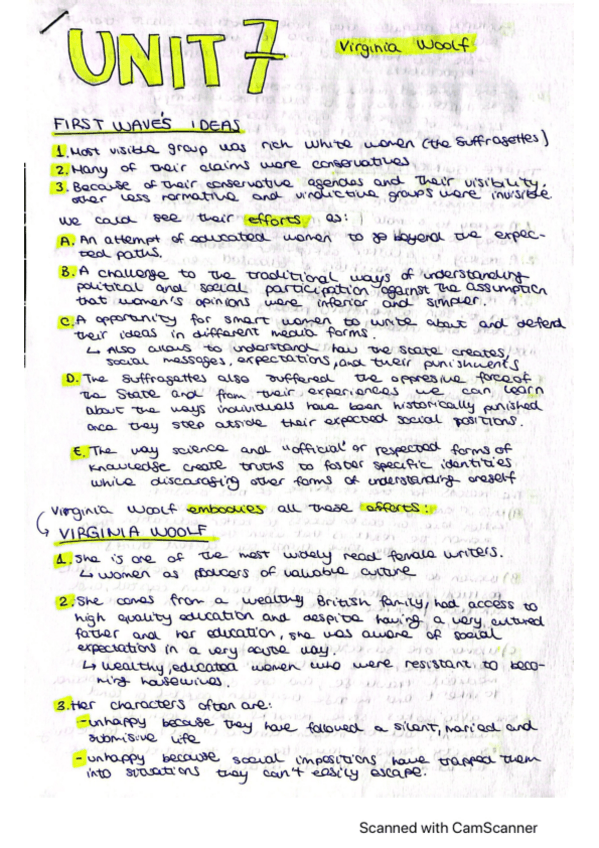 UNIT 7
Virginia Woolf
FIRST WAVE'S IDEAS
1. Most visible group was rich white women (the suffragettes)
2. Many of their claims were conservatives
3. Because of their conservative agendas and their visibility,
other less normative and vindictive groups were invisible.
We could see their efforts as:
A. An attempt of educated women to go beyond the expec-
ted paths.
B. A challenge to the traditional ways of understanding
political and social participation against the assumption
that women's opinions were inferior and simpler.
C. A opportunity for smart women to write about and defend
their ideas in different media forms.
↳ Also allows to understand how the state creates,
social messages, expectations, and their punishments
D. The suffragettes also suffered the oppresive force of
the State and from their experiences we can learn
about the ways individuals have been historically punished
once they step outside their expected social positions.
E. The way science and "official" or respected forms of
knowledge create truths to foster specific identities
while discouraging other forms of understanding oneself
Virginia Woolf embodies all these efforts:
↳ VIRGINIA WOOLF
1. She is one of the most widely read female writers.
↳ Women as producers of valuable culture
2. She comes from a wealthy British family, had access to
high quality education and despite having a very cultured
father and her education, she was aware of social
expectations in a very acute way.
↳ Wealthy, educated women who were resistant to beco-
ming housewives.
3. Her characters often are:
- unhappy because they have followed a silent, maried and
submisive life
- unhappy because social impositions have trapped them
into situations they can't easily escape.
Scanned with CamScanner